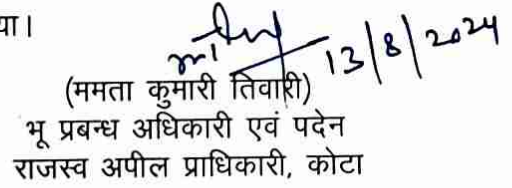 या।
13/8/2024
(ममता कुमारी तिवारी)
भू प्रबन्ध अधिकारी एवं पदेन
राजस्व अपील प्राधिकारी, कोटा